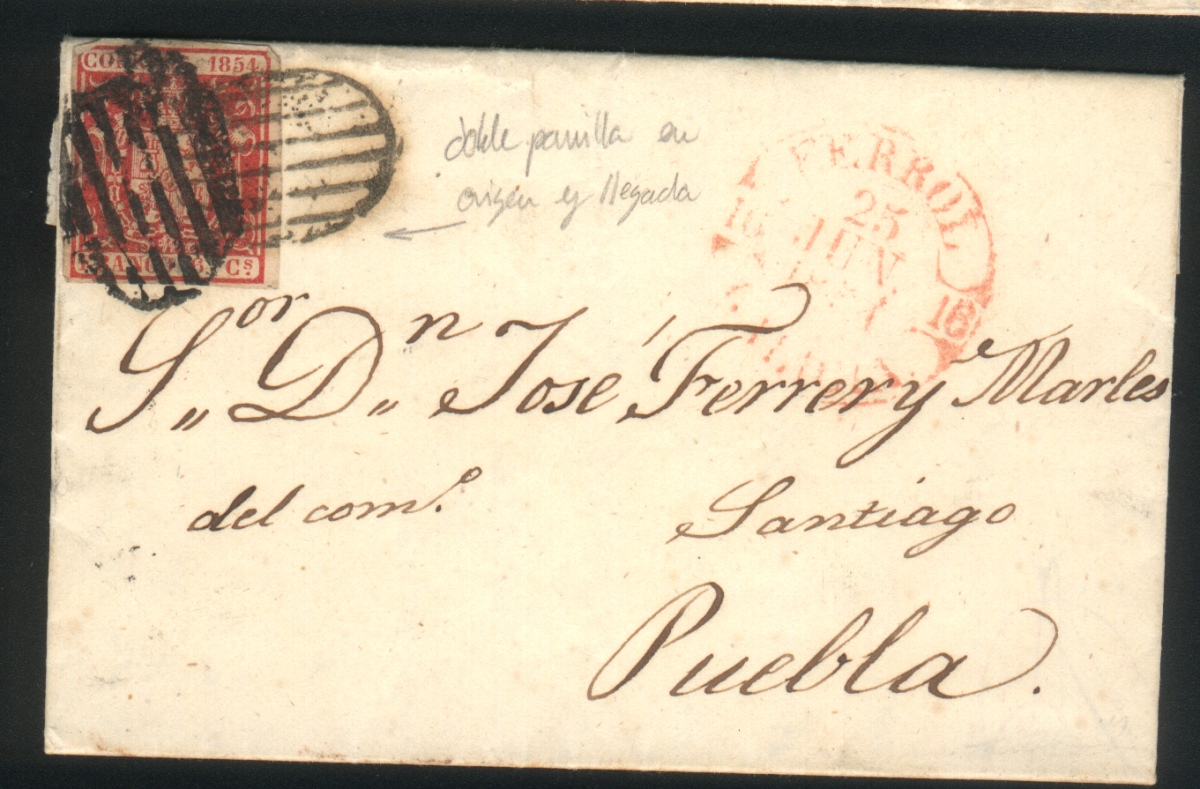 1854
FRANCO 6 Cs
doble parrilla en
origen y llegada
FERROL
25
JUN
16
16
Sor Dn Jose Ferrer y Marles
del como.
Santiago
Puebla.